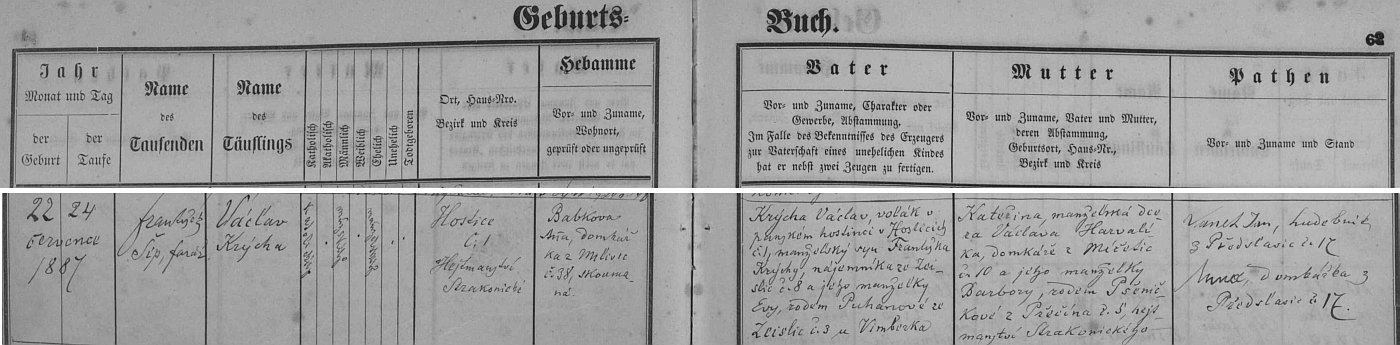 Geburts-
Buch.
62
Jahr
Monat und Tag
der
Geburt
der
Taufe
Name
des
Taufenden
Name
des
Täuflings
Katholisch
Akatholisch
Männlich
Weiblich
Ehelich
Unehelich
Todtgeboren
Ort, Haus-Nro.
Bezirk und Kreis
Hebamme
Vor- und Zuname,
Wohnort,
geprüft oder ungeprüft
Vater
Vor- und Zuname, Charakter oder
Gewerbe, Abstammung.
Im Falle des Bekenntnisses des Erzeugers
zur Vaterschaft eines unehelichen Kindes
hat er nebst zwei Zeugen zu fertigen.
Mutter
Vor- und Zuname, Vater und Mutter,
deren Abstammung,
Geburtsort, Haus-Nr.,
Bezirk und Kreis
Pathen
Vor- und Zuname und Stand
22
24
července
1887
František
Šíp, farář
Václav
Krýcha
Hoslice
č. 1
Hejtmanství
Strakonické
Babková
Anna, domkář
ka z
č 38, zkouma
ná.
Krýcha Václav, volák v
panském hostinci v Hoslicích
č. 1, manželský syn Františka
Krýchy, nájemníka ze Zei-
slic č. 8 a jeho manželky
Evy, rodem Puhanové ze
Zeislic č. 3 u Vimberka
Kateřina, manželská dce-
ra Václava Harvalí-
ka, domkáře z Mičetic
č. 10 a jeho manželky
Barbory, rodem Pšenič-
kové z č. 5, hejt-
manství Strakonického
Vaněk Jan, hudebník
z Předslavic č. 17
Anna, domkářka z
Předslavic č 17.